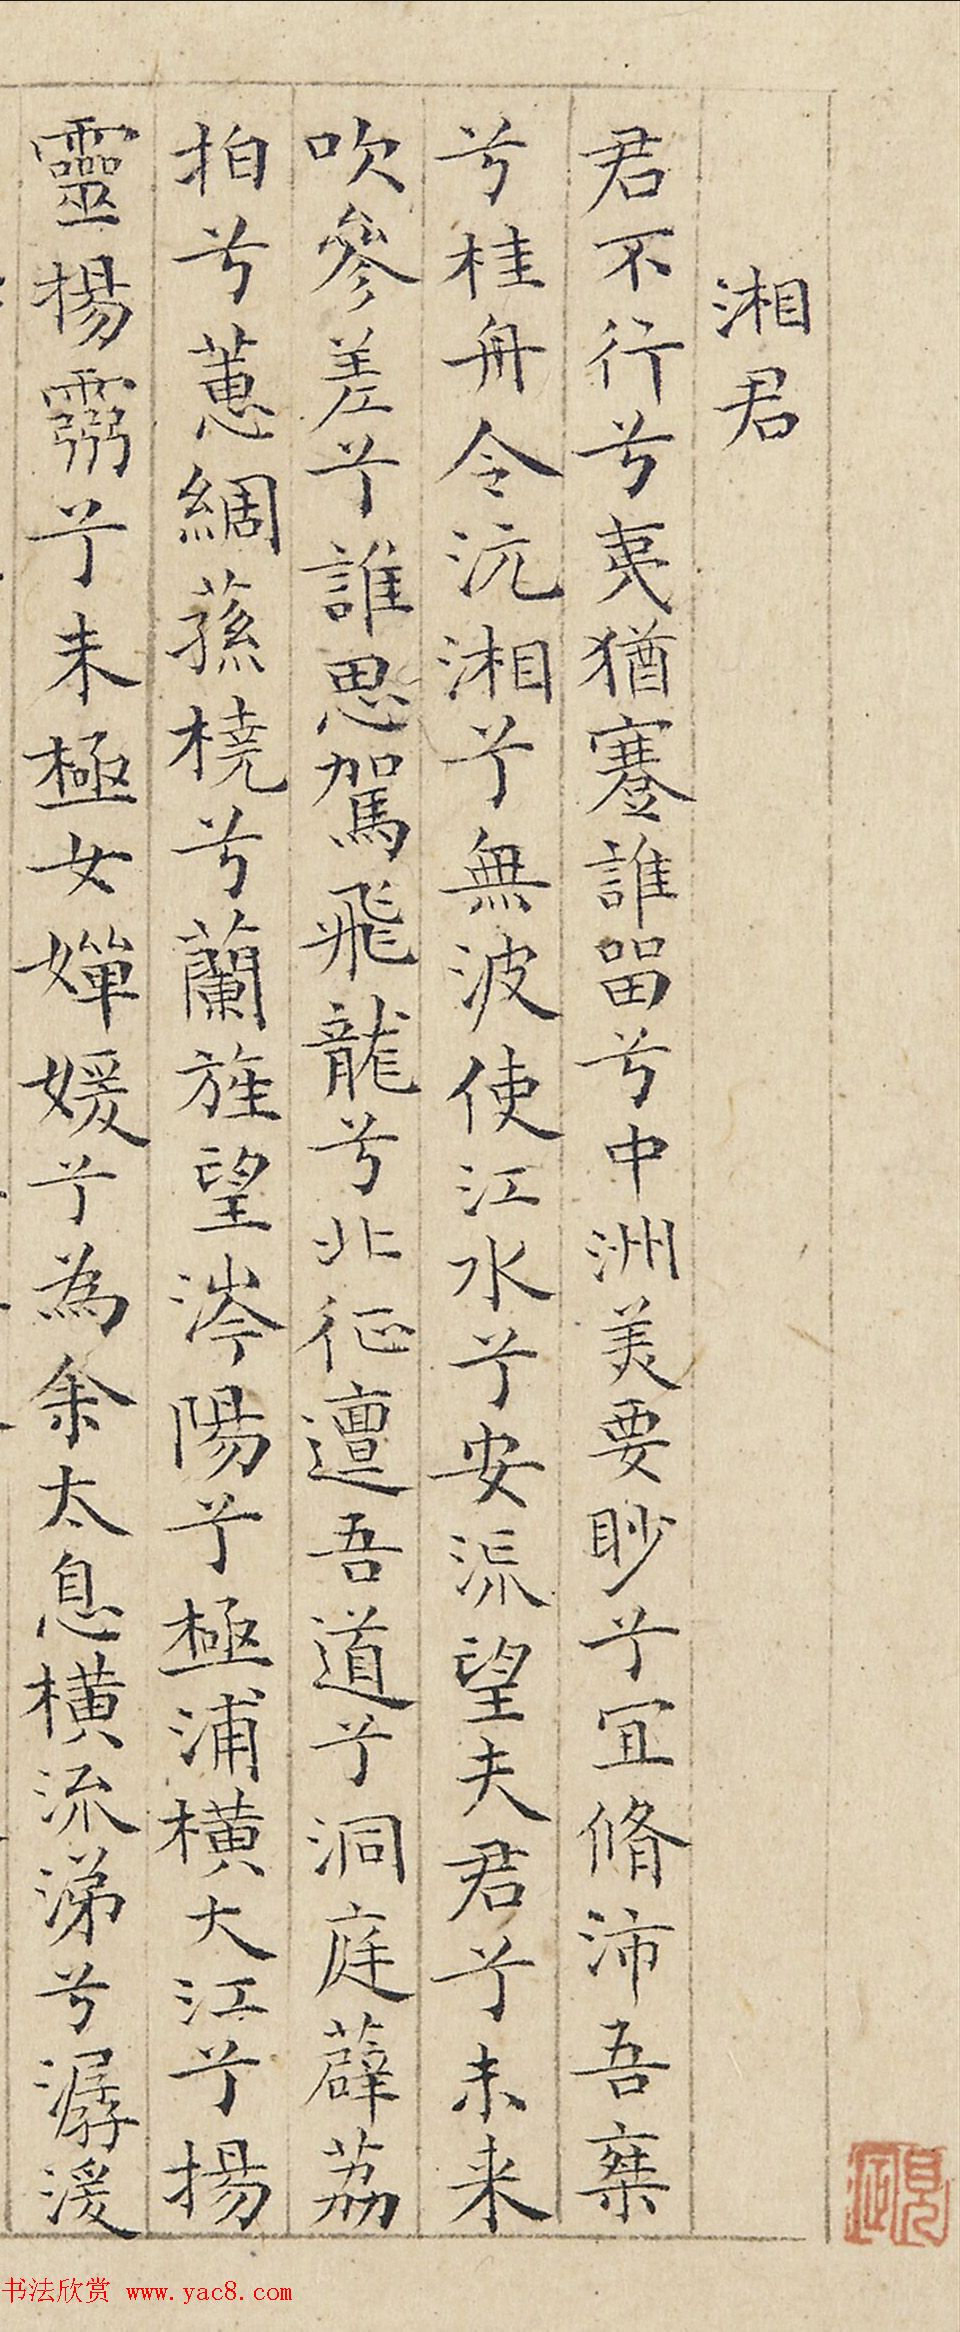 湘君
君不行兮夷猶蹇誰畱兮中洲美要眇兮宜脩沛吾乗
兮桂舟令沅湘兮無波使江水兮安流望夫君兮未来
吹參差兮誰思駕飛龍兮北征邅吾道兮洞庭薜荔
拍兮蕙綢蓀橈兮蘭旌望涔陽兮極浦橫大江兮揚
靈揚靈兮未極女嬋媛兮為余太息橫流涕兮潺湲
书法欣赏 www.yac8.com